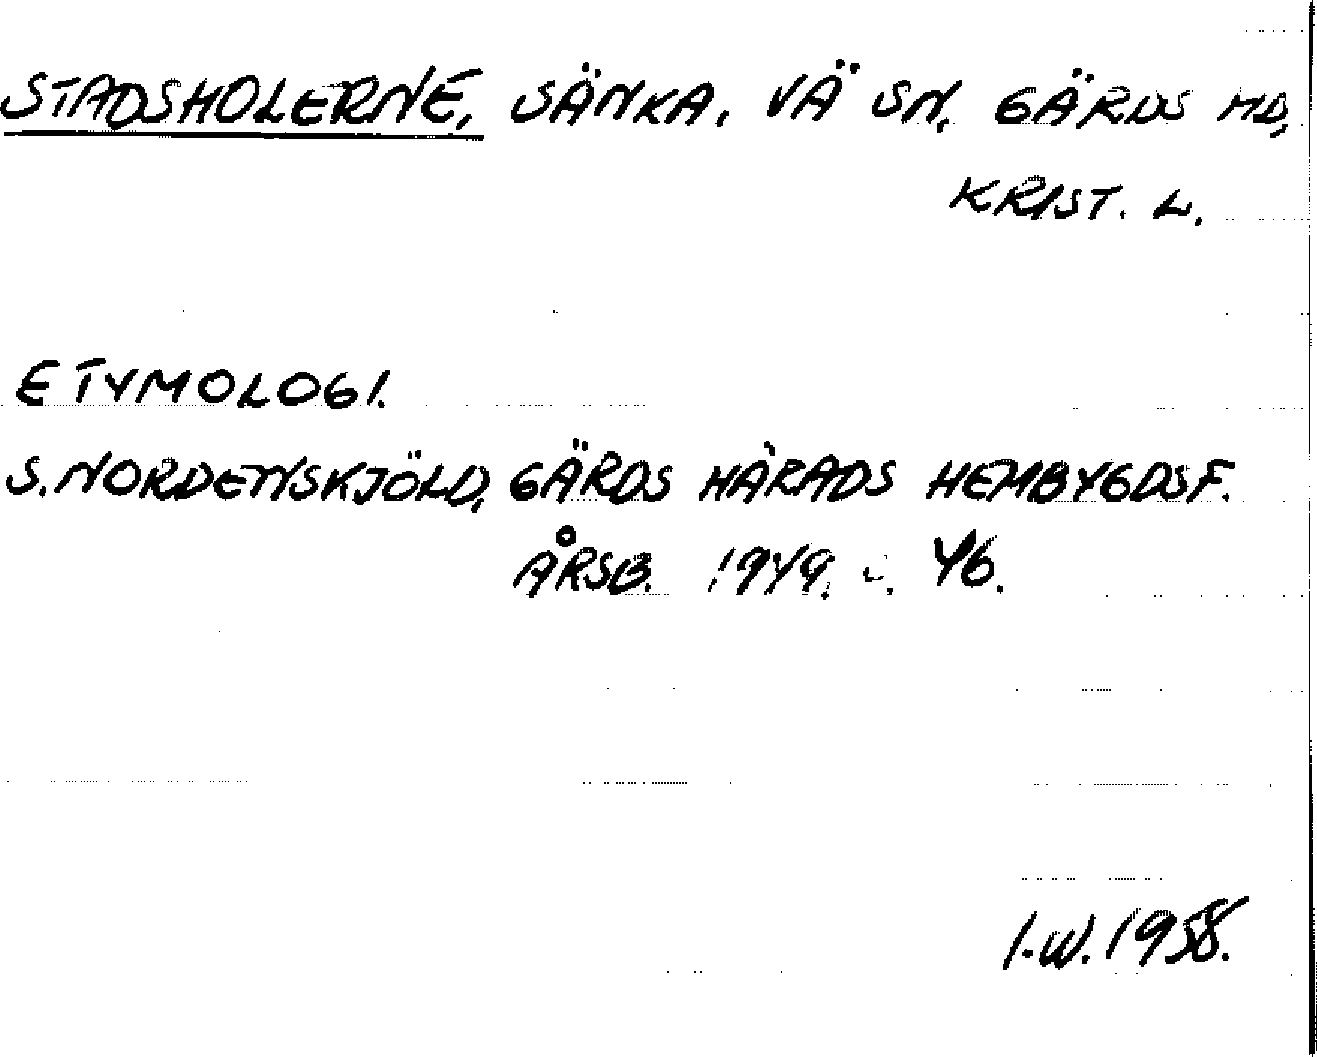 STADSHOLERNE, SÄNKA. VÄ SN. GÄRDS HD,
KRIST. L.
ETYMOLOGI.
S. NORDENSKJÖLD, GÄRDS HÄRADS HEMBYGDSF.
ÅRSB. 1949. S. 46.
I.W. 1958.